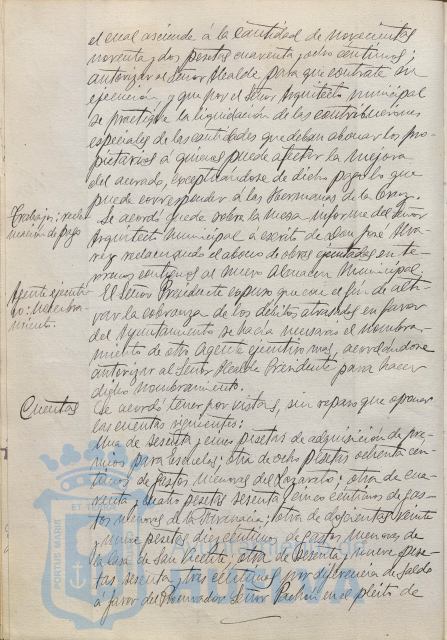 el cual asciende á la cantidad de novecientas
noventa y dos pesetas cuarenta y ocho céntimos;
autorizar al Señor Alcalde para que contrate su
ejecución, y que por el Señor Arquitecto municipal
se practique la liquidación de las contribuciones
especiales de las cantidades que deban abonar los pro-
pietarios á quienes puede afectar la mejora
del acerado, exceptuándose de dicho pago lo que
puede corresponder á las Hermanas de la Cruz.
Trabajos: recla-
mación de pago
Se acordó quede sobre la mesa informe del Señor
Arquitecto Municipal á escrito de Don José Alva-
rez reclamando el abono de obras ejecutadas en te-
rrenos contiguos al nuevo Almacen Municipal.
Agente ejecuti-
vo: nombra-
miento.
El Señor Presidente expuso que con el fin de acti-
var la cobranza de los débitos atrasados en favor
del Ayuntamiento se hacía necesario el nombra-
miento de otro Agente ejecutivo mas, acordándose
autorizar al Señor Alcalde Presidente para hacer
dicho nombramiento.
Cuentas
Se acordó tener por vistas, sin reparo que oponer
las cuentas siguientes:
Una de sesenta y cinco pesetas de adquisición de pre-
mios para Escuelas; otra de ocho pesetas ochenta cén-
timos de gastos menores del Lazareto; otra de cua-
renta y cuatro pesetas sesenta y cinco céntimos de gas-
tos menores de la; otra de doscientas veinte
y nueve pesetas diez céntimos de gastos menores de
la casa de San Vicente; otra de sesenta y nueve pese-
tas sesenta y tres céntimos por diferencia de saldo
á favor del Procurador Señor en el pleito de
PORTUS MARIS
ET TERRAE